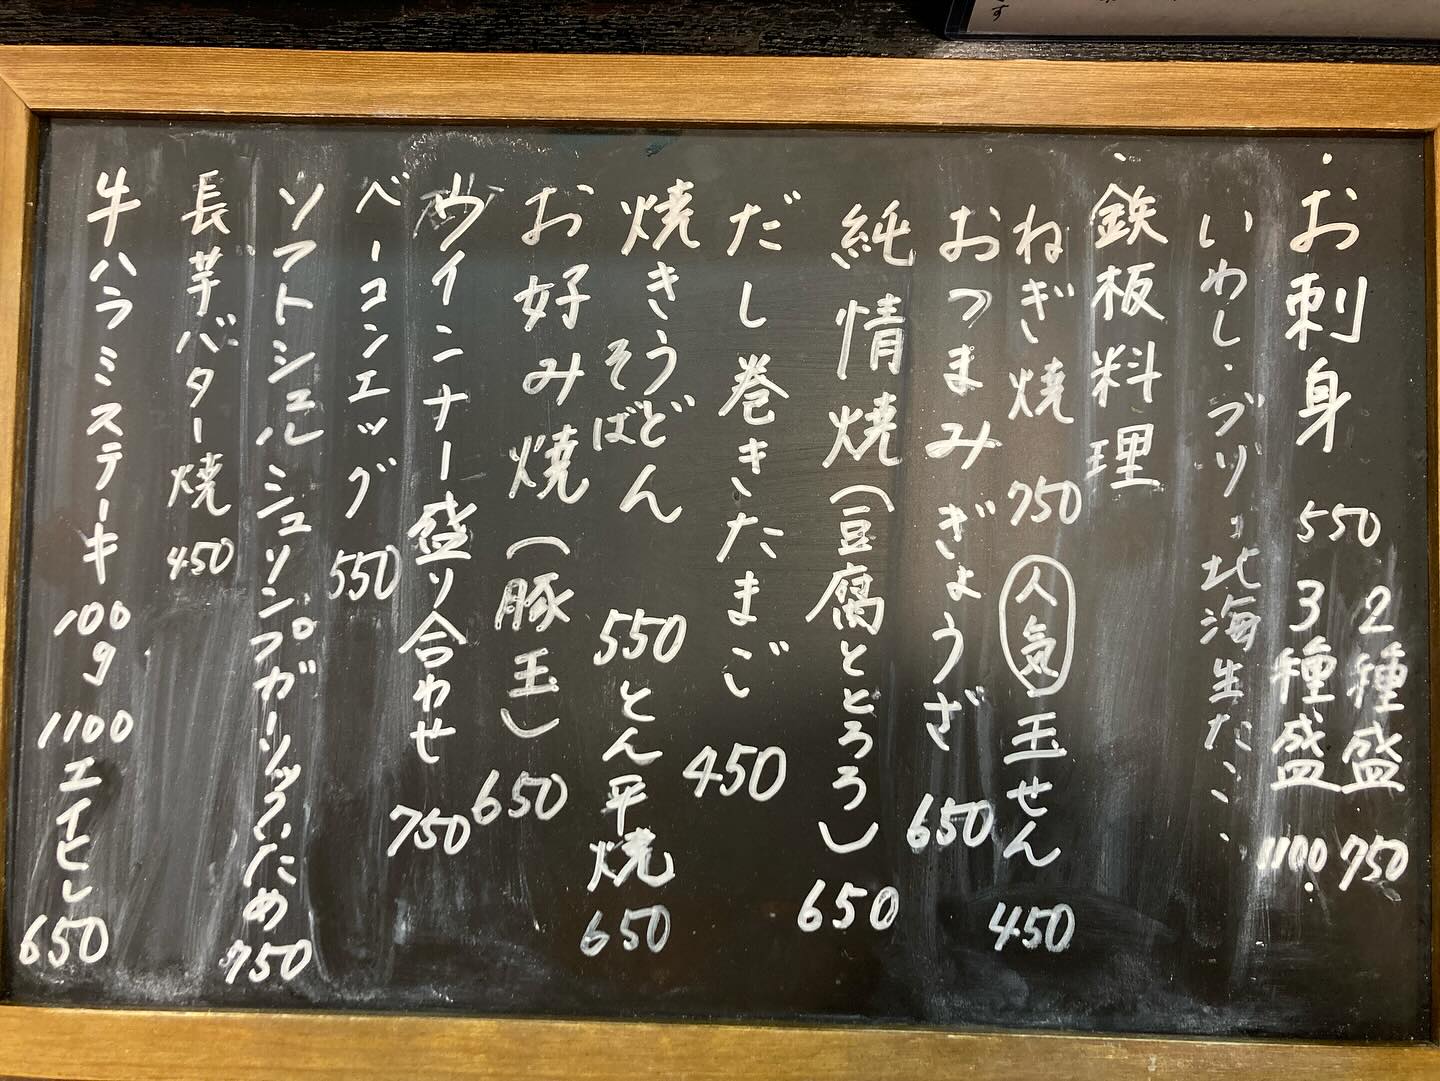 ・お刺身 550
2種盛 750
3種盛 1100
いわし・ブリ・北海生たこ
・鉄板料理
ねぎ焼 750 人気 玉せん 450
おつまみぎょうざ 650
純情焼(豆腐ととろろ) 650
だし巻きたまご 450
焼きうどん そば 550 とん平焼 650
お好み焼(豚玉) 650
ウインナー盛り合わせ 750
ベーコンエッグ 550
ソフトシェルシュリンプガーリックいため 750
長芋バター焼 450
牛ハラミステーキ 100g 1100 エイヒレ 650